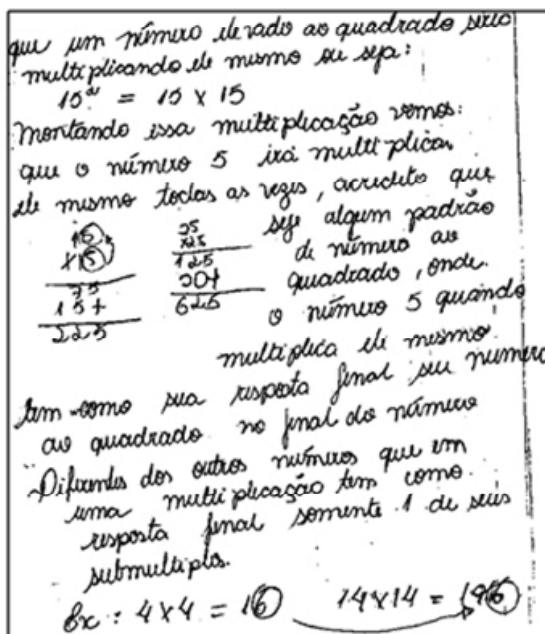 que um número elevado ao quadrado seria
multiplicando ele mesmo ou seja:
15² = 15 x 15
Montando essa multiplicação vemos:
que o número 5 irá multiplicar
ele mesmo todas as vezes, acredito que
seje algum padrão
de número ao
quadrado, onde.
o número 5 quando
15
x15
75
15+
225
25
x25
125
50+
625
multiplica ele mesmo
tem como sua resposta final seu numero
ao quadrado no final do número
Diferentes dos outros números que em
uma multiplicação tem como
resposta final somente 1 de seus
submultiplos.
Ex: 4x4 = 16 14x14 = 196